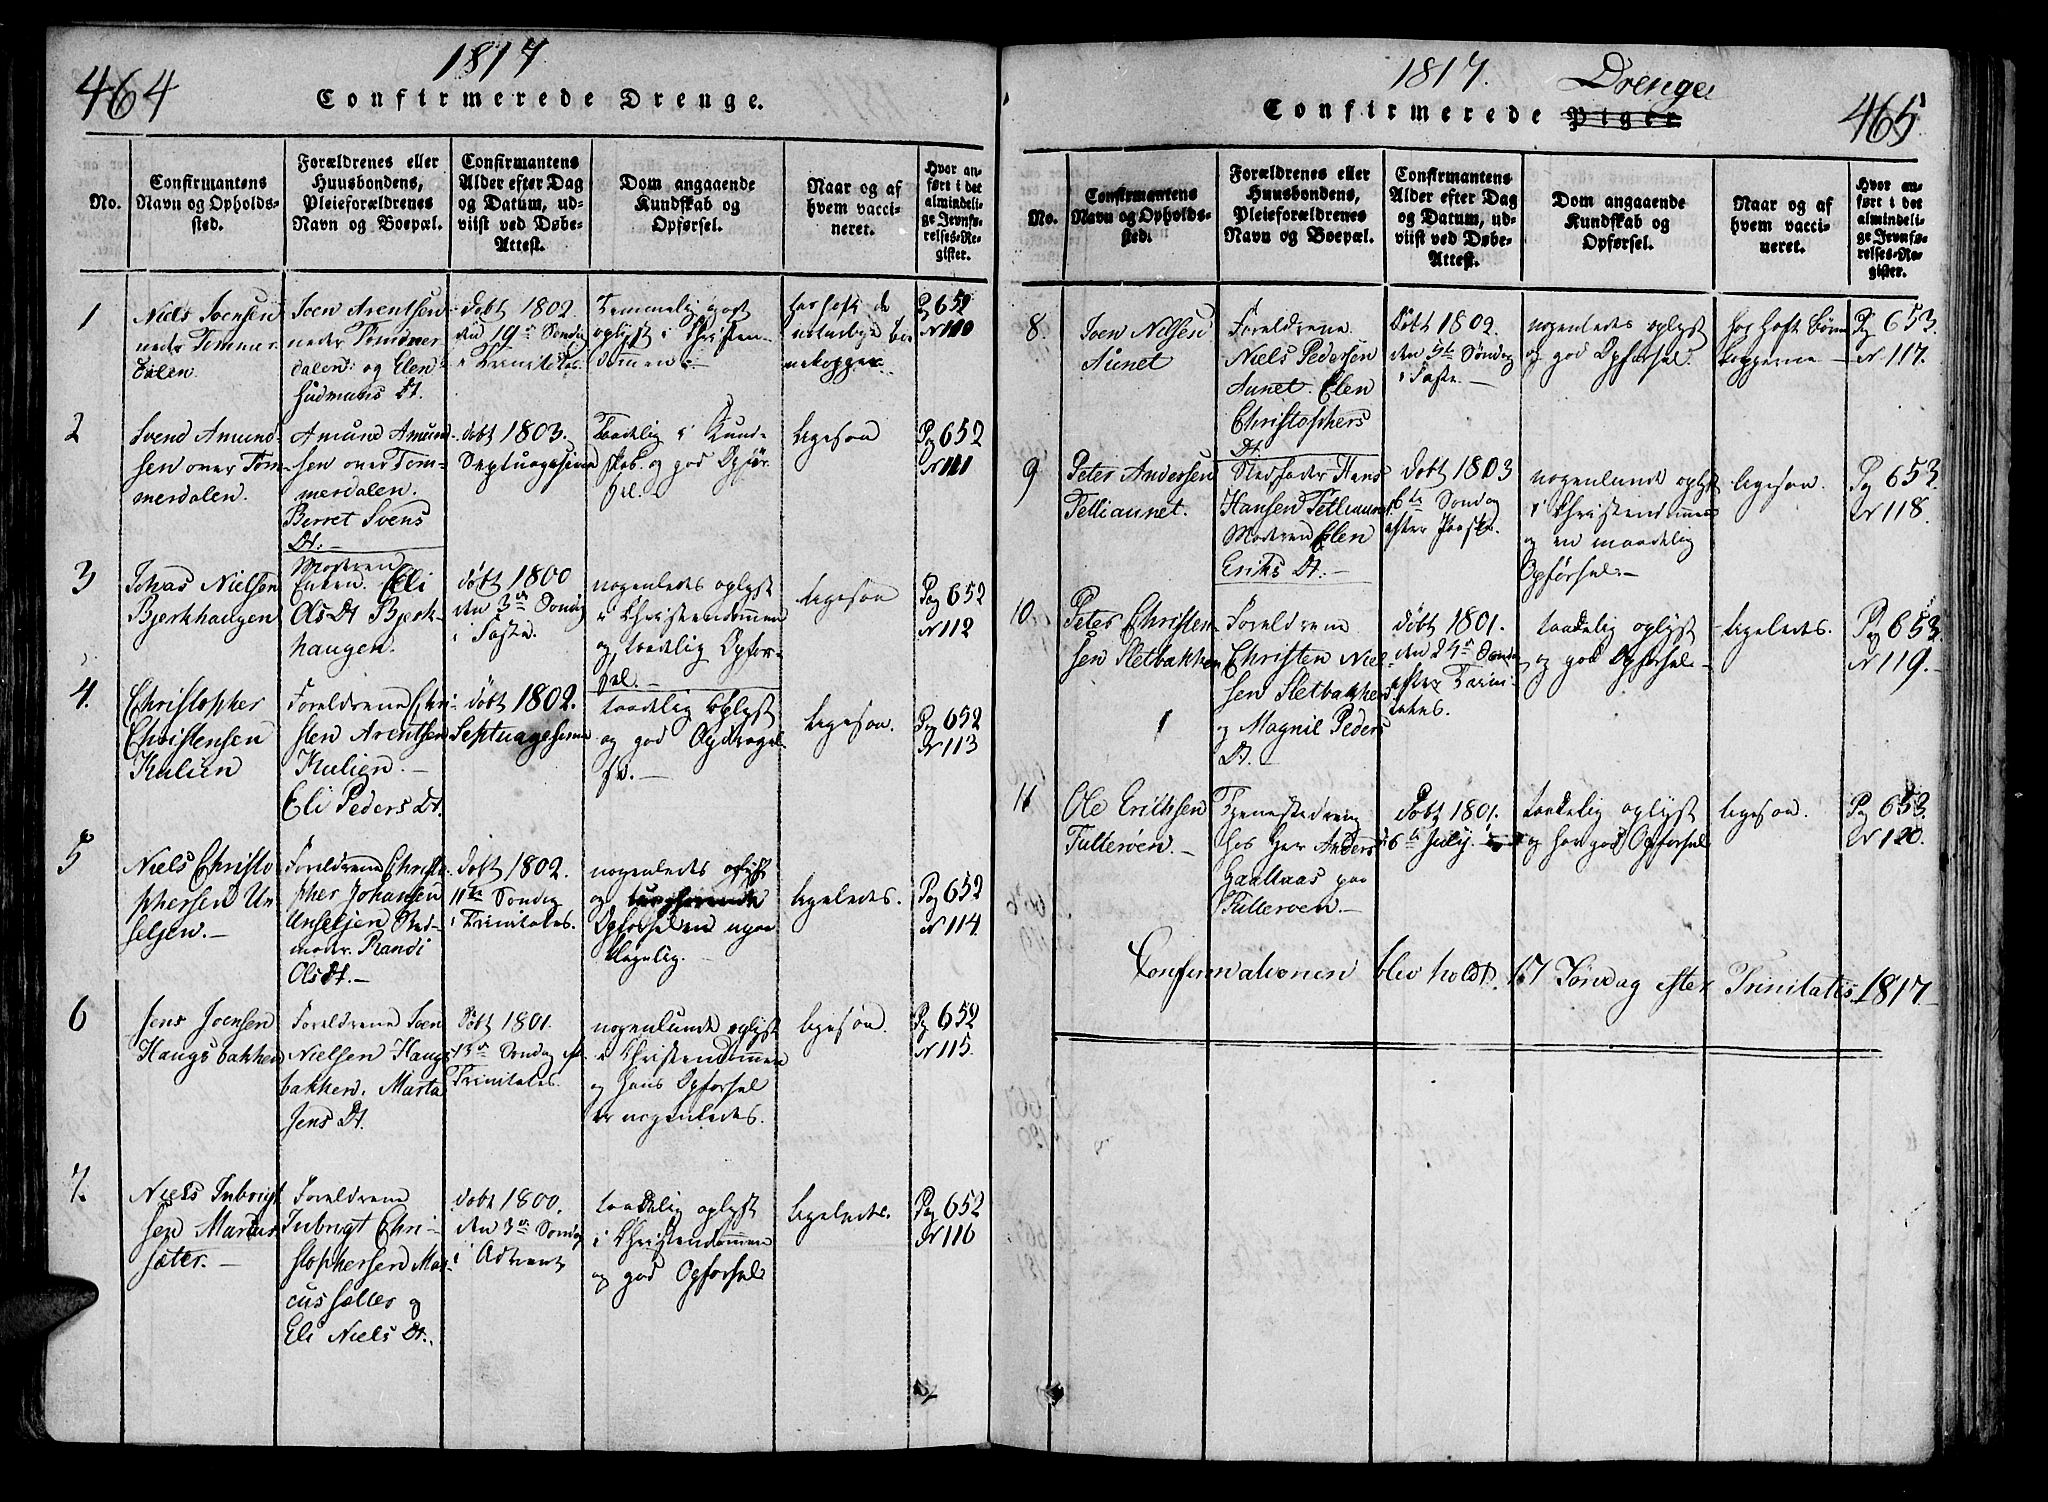 464
1817
Confirmerede Drenge.
No.
Confirmantens
Navn og Opholds-
sted.
Forældrenes eller
Huusbondens,
Pleieforældrenes
Navn og Boepæl.
Confirmantens
Alder efter Dag
og Datum, ud-
viist ved Døbe-
Attest.
Dom angaaende
Kundskab og
Opførsel.
Naar og af
hvem vacci-
neret.
Hvor an-
ført i det
almindeli-
ge Jevnfø-
relses-Re-
gister.
1
Niels Joensen
neder Tommer
dalen.
Joen Arentsen
neder Tommer
dalen og Elen
Gudmans Dt.
døbt 1802.
den 19de Søndag
Temmelig godt
oplyst i Christen-
dommen
har haft de
naturlige bør
nekopper
Pag 652
N 110
2
Svend Amund-
sen over Tom-
merdalen.
Amund Amund
sen over Tom-
merdalen.
Berret Svens
Dt.
døbt 1803.
Septuagesima
Taadelig i Kund-
skab og god Opfør
sel.
ligesaa
Pag 652
N 111
3
Johas Nielsen
Bjerkhaugen
Modren
Enken Eli
Ols Dt Bjerk-
haugen.
døbt 1800
den 3de Søndag
i Faste.
nogenledes oplyst
i Christendommen
og taadelig Opfør-
sel.
ligesaa
Pag 652
N 112
4.
Christopher
Christensen
Kulien
Foreldrene Chri-
sten Arentsen
Kulien.
Eli Peders Dt.
døbt 1802.
Septuagesima
taadelig oplyst
og god
ligesaa.
Pag 652
N 113
5
Niels Christo
phersen Un-
seljen.
Foreldrene Christo
pher Johansen
Unseljen Sted-
moder Randi
Ols Dt.
døbt 1802.
11te Søndag
i Trinitates.
nogenledes oplyst
og
Opførselen upaa
klagelig.
ligeledes.
Pag 652
N 114
6
Jens Joensen
Haugsbakken
Foreldrene Joen
Nielsen Haugs
bakken. Marta
Jens Dt.
Døbt 1801.
13de Søndag ef.
Trinitates.
nogenlunde oplyst
i Christendommen
og hans Opførsel
er nogenledes.
ligesaa.
Pag 652
N 115.
7.
Niels Inbrigt
sen Marcus
sæter.
Foreldrene
Inbrigt Chri-
stophersen Mar-
cussæter og
Eli Niels Dt.
døbt 1800.
den 3de Søndag
i Advent
taadelig oplyst
i Christendommen
og god Opførsel
ligeledes.
Pag 652
N 116
1817.
Drenge
Confirmerede Piger
465
No.
Confirmantens
Navn og Opholds-
sted.
Forældrenes eller
Huusbondens,
Pleieforældrenes
Navn og Boepæl.
Confirmantens
Alder efter Dag
og Datum, ud-
viist ved Døbe-
Attest.
Dom angaaende
Kundskab og
Opførsel.
Naar og af
hvem vacci-
neret.
Hvor an-
ført i det
almindeli-
ge Jevnfø-
relses-Re-
gister.
8.
Joen Nilsen
Aunet
Foreldrene
Niels Pedersen
Aunet. Elen
Christophers
Dt.
Døbt 1802.
den 5te Søndag
i Faste.
nogenledes oplyst
og god Opførsel.
har haft Børne
kopperne
Pag 653.
N 117.
9
Peter Andersen
Telliaunet.
Stedfader Hans
Hansen Telliaunet
Modren Elen
Eriks Dt.
døbt 1803
6te Søndag
efter Paaske.
nogenlunde oplyst
i Christendommen
og en maadelig
Opførsel.
ligesaa.
Pag 653.
N 118.
10.
Peter Christen-
sen Sletbakken
Foreldrene
Christen Niel-
sen Sletbakken
og Magnil Peders
Dt.
døbt 1801.
den 24de Søndag
efter Trini-
tates.
taadelig oplyst
og god Opførsel
ligeledes.
Pag 653
N 119.
11
Ole Eriksen
Tulterøen.
Tjenestedreng
hos Herr Anders
Gaaltaas paa
Tulterøen.
Døbt 1801.
6te July.
taadelig oplyst
og har god Opførsel
ligesaa.
Pag 653.
N 120.
Confirmationen blev holdt 17 Søndag efter Trinitatis 1817